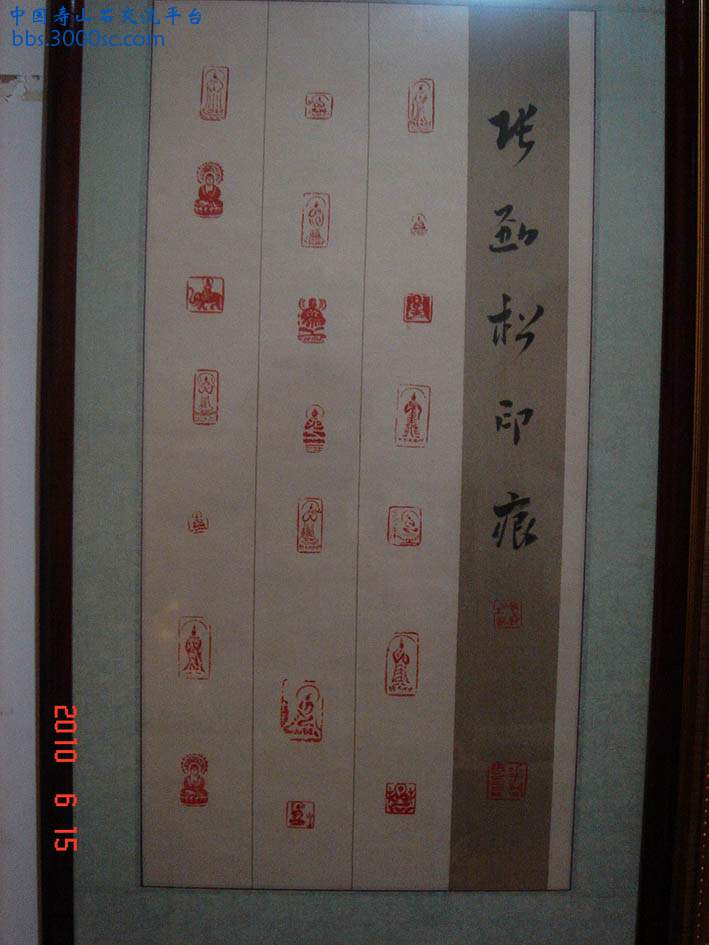 中国寿山石交流平台
bbs.3000sc.com
张
松印痕
2010 6 15